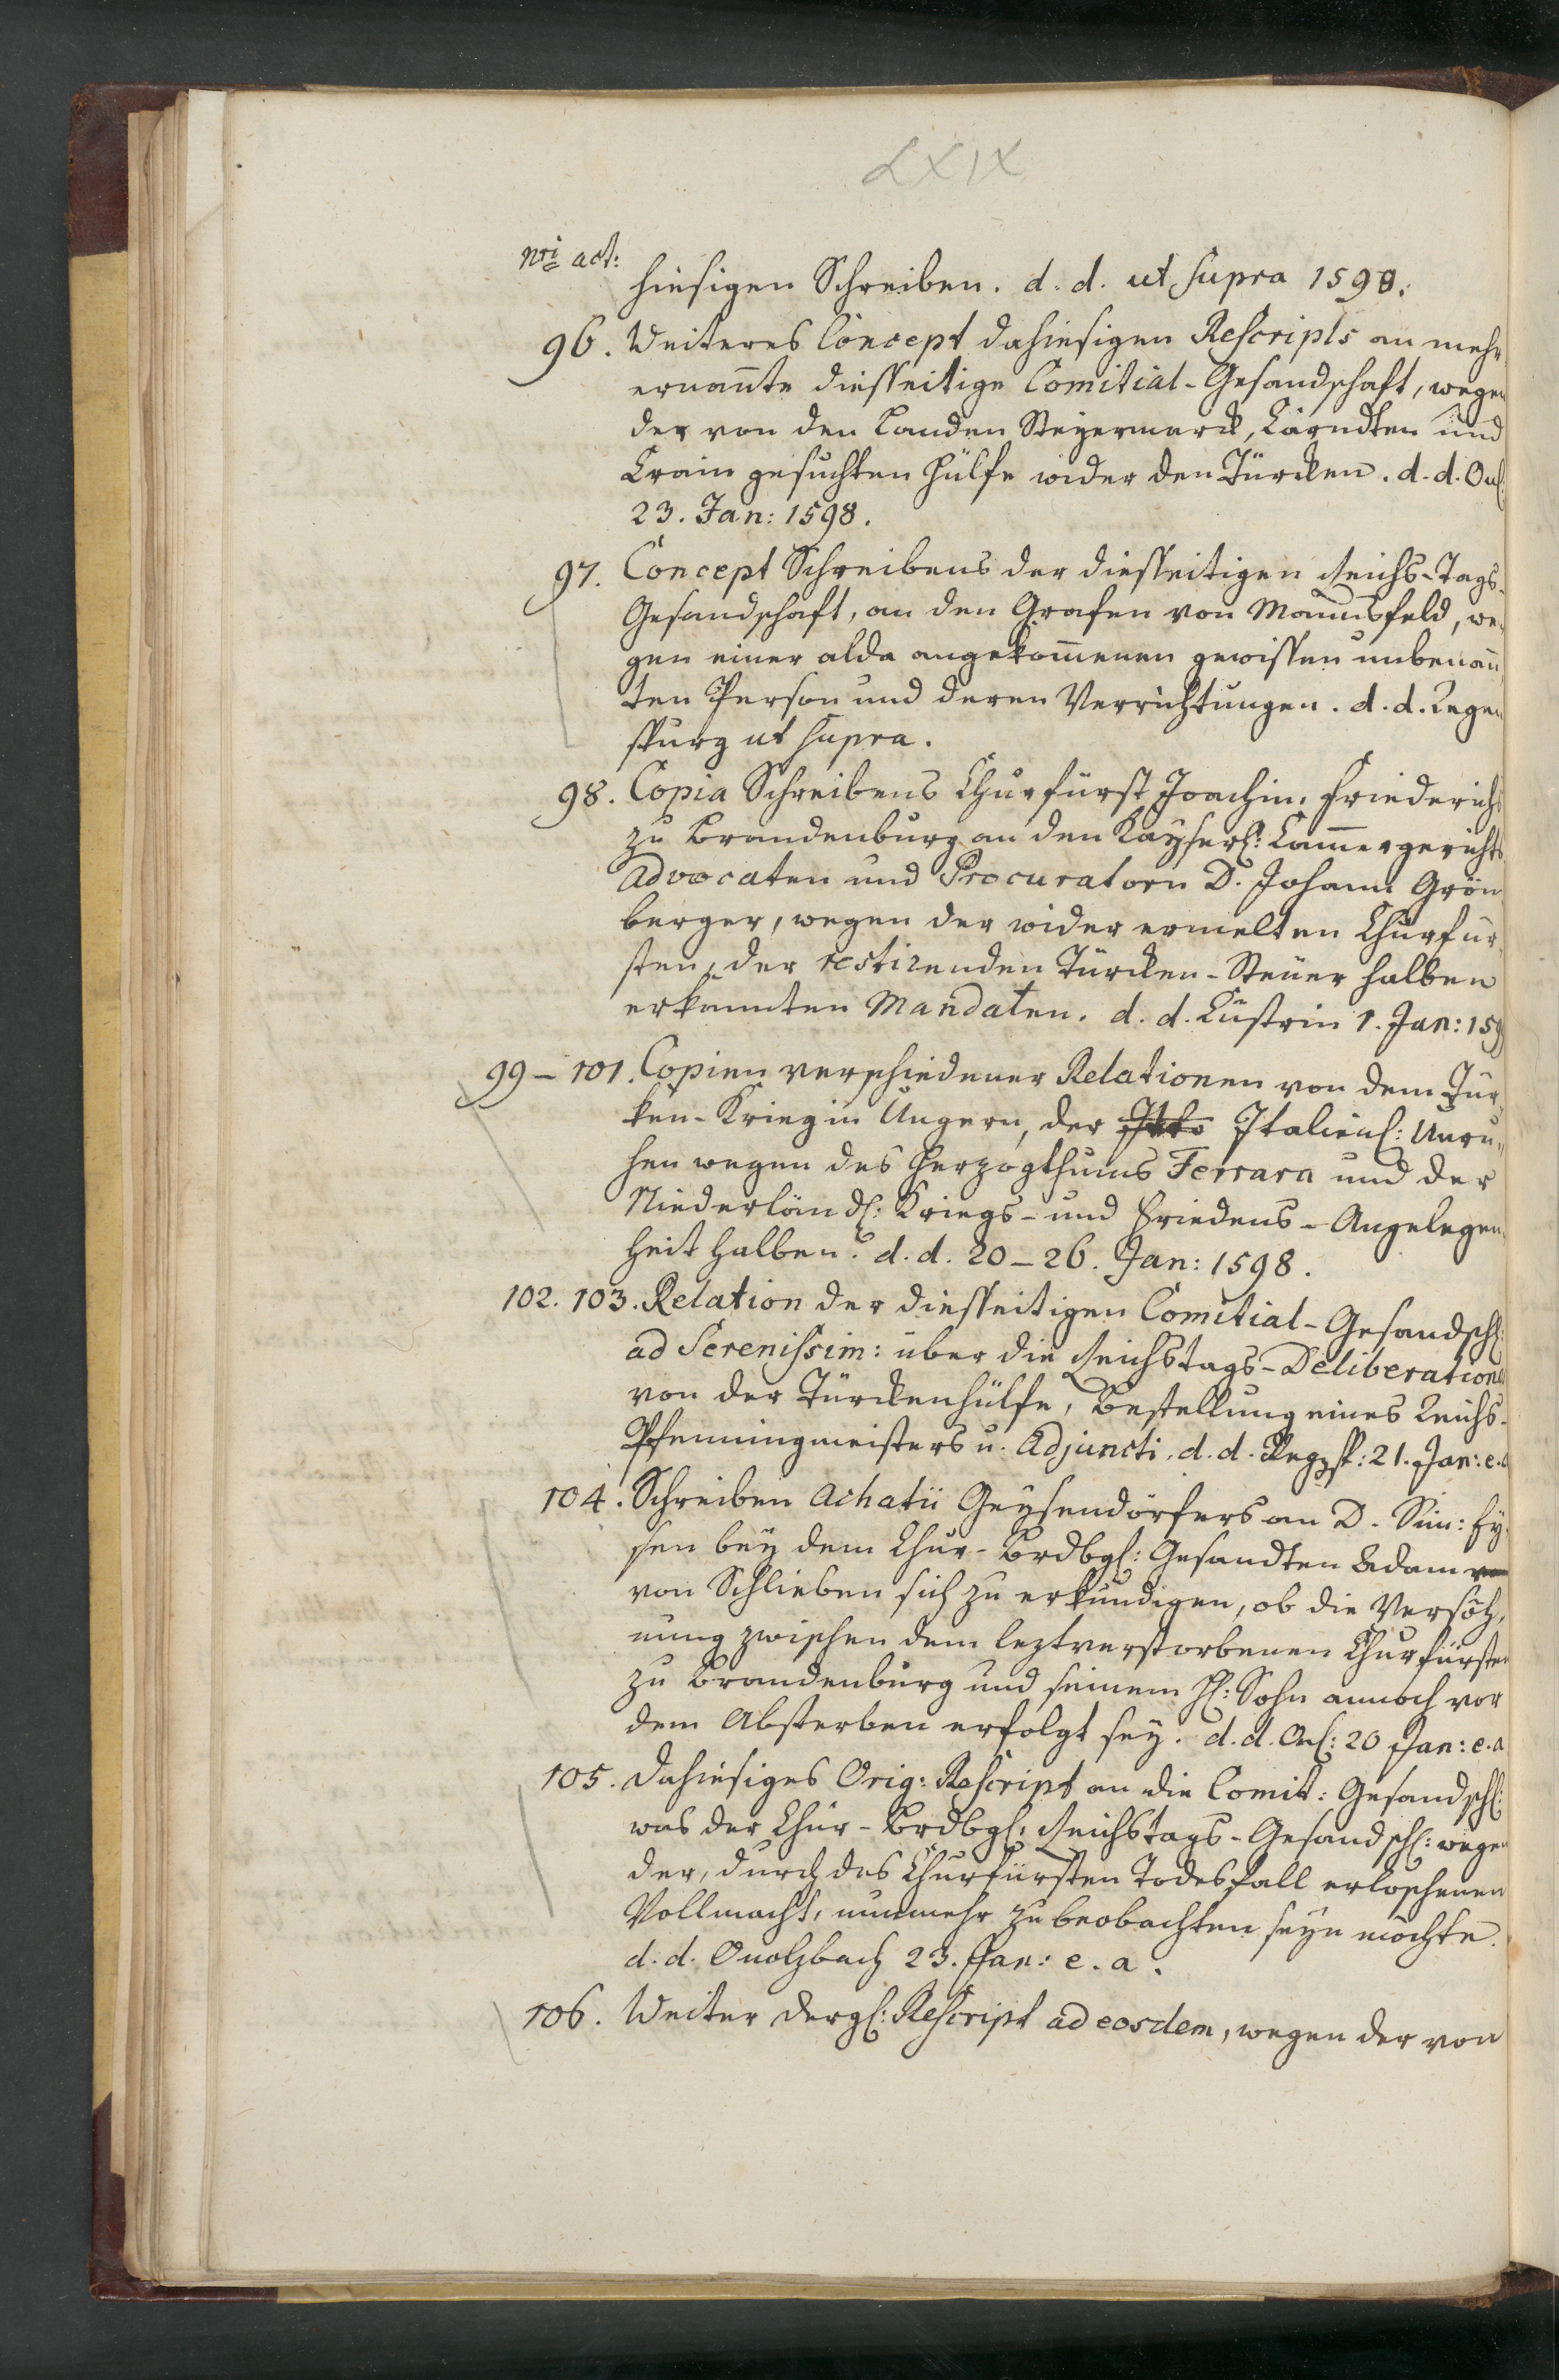 LXIX
nri act:
hiesigen Schreiben. d. d. ut supra 1598.
96. Weiteres Concept dahiesigen Rescripts an meh„
ernañte diesseitige Comitial-Gesandschaft, wegen
der von den Landen Steyermarck, Cärndten und
Crain gesuchten Hülfe wider den Türcken. d. d. Onl:
23. Jan: 1598.
97. Concept Schreibens der diesseitigen Reichs-Tags-
Gesandschaft, an den Grafen von Mannsfeld, we-
gen einer alda angekom̄enen gewissen unbenañ
ten Person und deren Verrichtungen. d. d. Regen
spurg ut supra.
98. Copia Schreibens Churfürst Joachim Friederichs
zu Brandenburg an den Kayserl: Cam̄ergerichts
Advocaten und Procuratorn D. Johann Grön
berger, wegen der wider ermelten Churfür-
sten, der restirenden Türcken-Steuer halben
erkannten Mandaten. d. d. Cüstrin 1. Jan: 159
99 – 101. Copien verschiedener Relationen von dem Tür
ken-Krieg in Ungern, der Italienl: Unru„
hen wegen des Herzogthums Ferrara und der
Niederländl: Kriegs- und Friedens-Angelegen
heit halben. d. d. 20 – 26. Jan: 1598.
102. 103. Relation der diesseitigen Comitial-Gesandschl:
ad Serenissim: über die Reichstags-Deliberationen
von der Türckenhülfe, Bestellung eines Reichs-
Pfenningmeisters u. Adjuncti. d. d. Regsp: 21. Jan: e. a
104. Schreiben Achatii Geysendörfers an D. Sim: Ey-
sen bey dem Chur-Brdbgl: Gesandten Adam
von Schlieben sich zu erkundigen, ob die Versöh„
nung zwischen dem leztverstorbenen Churfürsten
zu Brandenburg und seinem Hl: Sohn annoch vor
dem Absterben erfolgt sey. d. d. Onl: 20 Jan: e. a
105. Dahiesiges Orig: Rescript an die Comit: Gesandschl:
was der Chur-Brdbgl: Reichstags-Gesandschl: wegen
der, durch des Churfürsten Todesfall erloschenen
Vollmacht, nunmehr zu beobachten seyn möchte.
d. d. Onolzbach 23. Jan: e. a.
106. Weiter dergl: Rescript ad eosdem, wegen der von